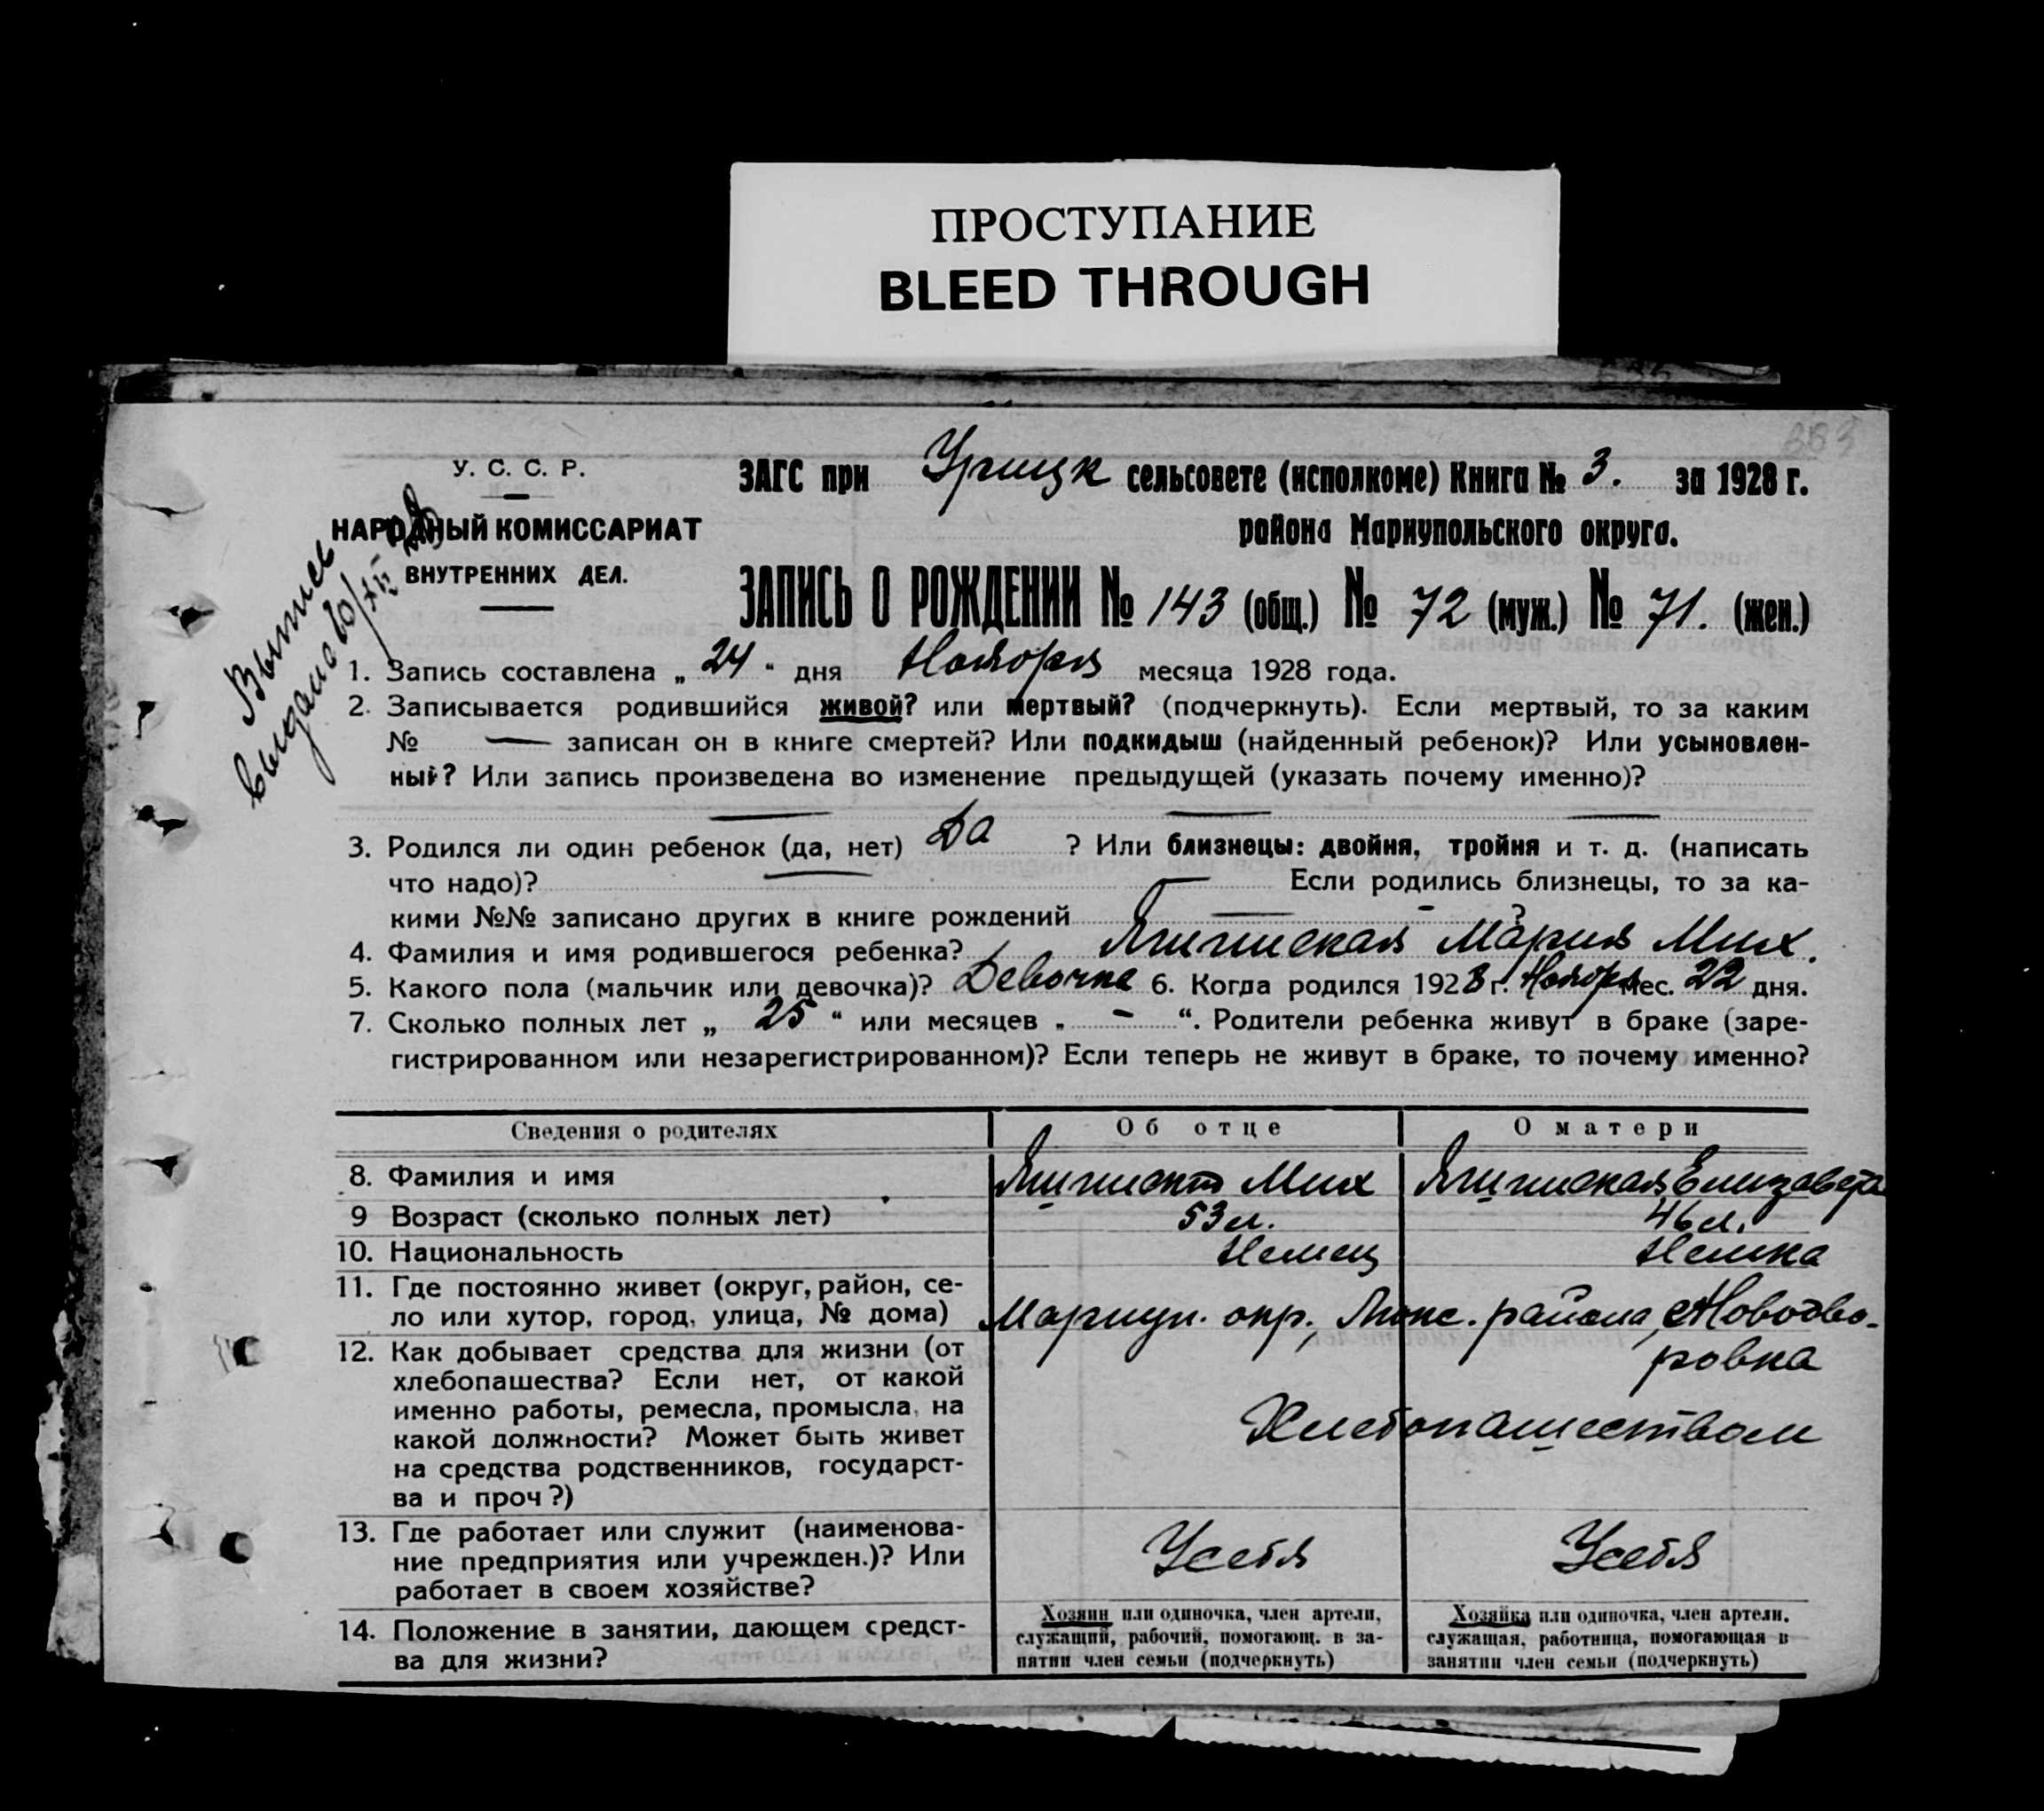 ПРОСТУПАНИЕ
BLEED THROUGH
У. С. С. Р.
НАРОДНЫЙ КОМИССАРИАТ
ВНУТРЕННИХ ДЕЛ.
Выпись
выдана
ЗАГС при Урицк сельсовете (исполкоме) Книга № 3. за 1928 г.
района Мариупольского округа.
ЗАПИСЬ О РОЖДЕНИИ № 143 (общ.) № 72 (муж.) № 71. (жен.)
1. Запись составлена „ 24 “ дня Ноября месяца 1928 года.
2. Записывается родившийся живой? или мертвый? (подчеркнуть). Если мертвый, то за каким
№ — записан он в книге смертей? Или подкидыш (найденный ребенок)? Или усыновлен-
ный? Или запись произведена во изменение предыдущей (указать почему именно)?
3. Родился ли один ребенок (да, нет) Да ? Или близнецы: двойня, тройня и т. д. (написать
что надо)? — — Если родились близнецы, то за ка-
кими №№ записано других в книге рождений — ?
4. Фамилия и имя родившегося ребенка? Мария Мих.
5. Какого пола (мальчик или девочка)? Девочка 6. Когда родился 1928 г. Ноября мес. 22 дня.
7. Сколько полных лет „ 25 “ или месяцев „ - “. Родители ребенка живут в браке (заре-
гистрированном или незарегистрированном)? Если теперь не живут в браке, то почему именно?
Сведения о родителях Об отце О матери
8. Фамилия и имя Мих Елизавета
9 Возраст (сколько полных лет) 53 л. 46 л.
10. Национальность Немец Немка
11. Где постоянно живет (округ, район, се-
ло или хутор, город, улица, № дома) Мариуп. окр., Люкс. района, с Новодво-
ровка
12. Как добывает средства для жизни (от
хлебопашества? Если нет, от какой
именно работы, ремесла, промысла, на
какой должности? Может быть живет
на средства родственников, государст-
ва и проч?)
Хлебопашеством
13. Где работает или служит (наименова-
ние предприятия или учрежден.)? Или
работает в своем хозяйстве?
У себя У себя
14. Положение в занятии, дающем средст-
ва для жизни?
Хозяин или одиночка, член артели,
служащий, рабочий, помогающ. в за-
нятии член семьи (подчеркнуть)
Хозяйка или одиночка, член артели,
служащая, работница, помогающая в
занятии член семьи (подчеркнуть)